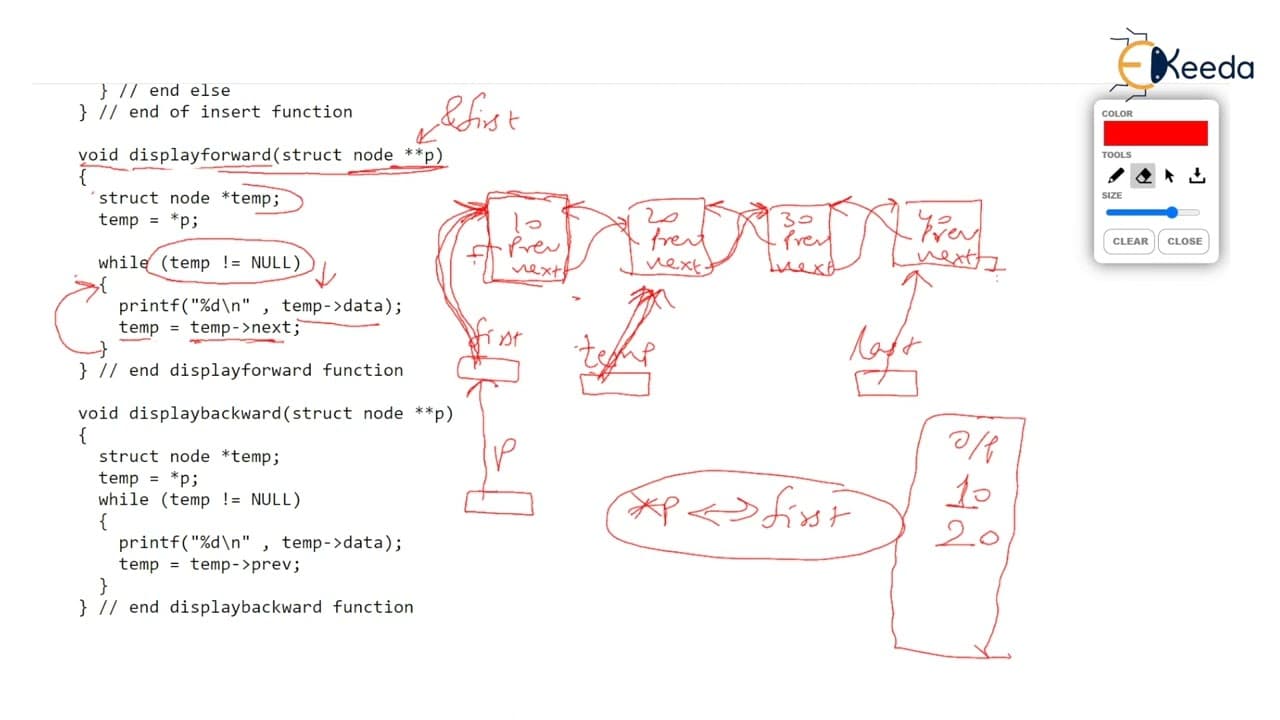 } // end else
} // end of insert function
&first
void displayforward(struct node **p)
{
struct node *temp;
temp = *p;
while (temp != NULL)
{
printf("%d\n" , temp->data);
temp = temp->next;
}
} // end displayforward function
void displaybackward(struct node **p)
{
struct node *temp;
temp = *p;
while (temp != NULL)
{
printf("%d\n" , temp->data);
temp = temp->prev;
}
} // end displaybackward function
10
Prev
next
20
Prev
next
30
Prev
next
40
Prev
next
first
temp
last
P
*P <-> first
O/P
10
20
EKeeda
COLOR
TOOLS
SIZE
CLEAR
CLOSE